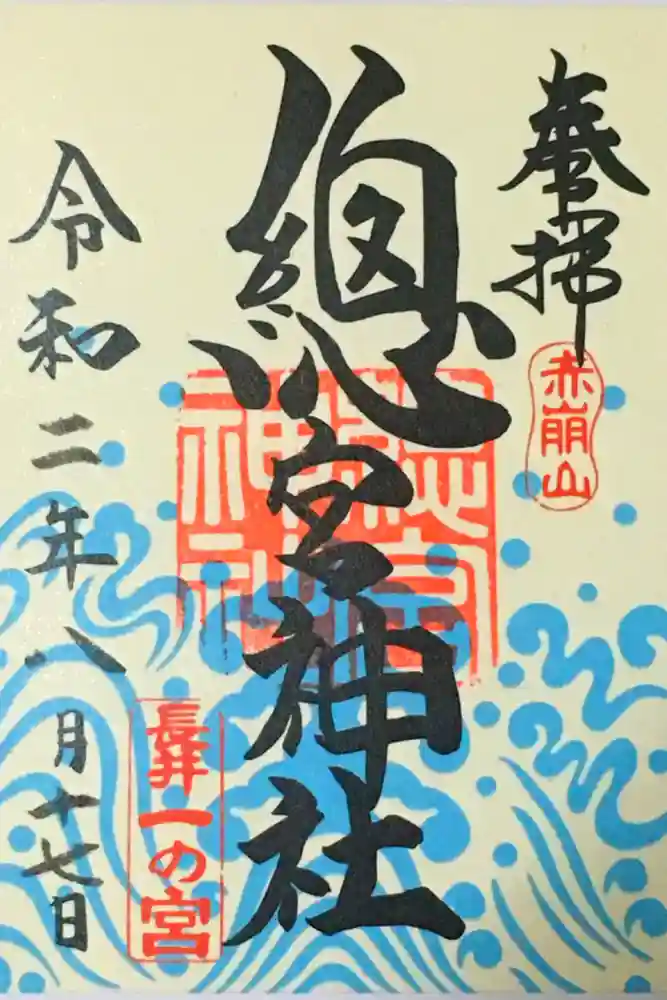 奉拝
赤崩山
總宮神社
総宮神社
長井一の宮
令和二年八月十七日